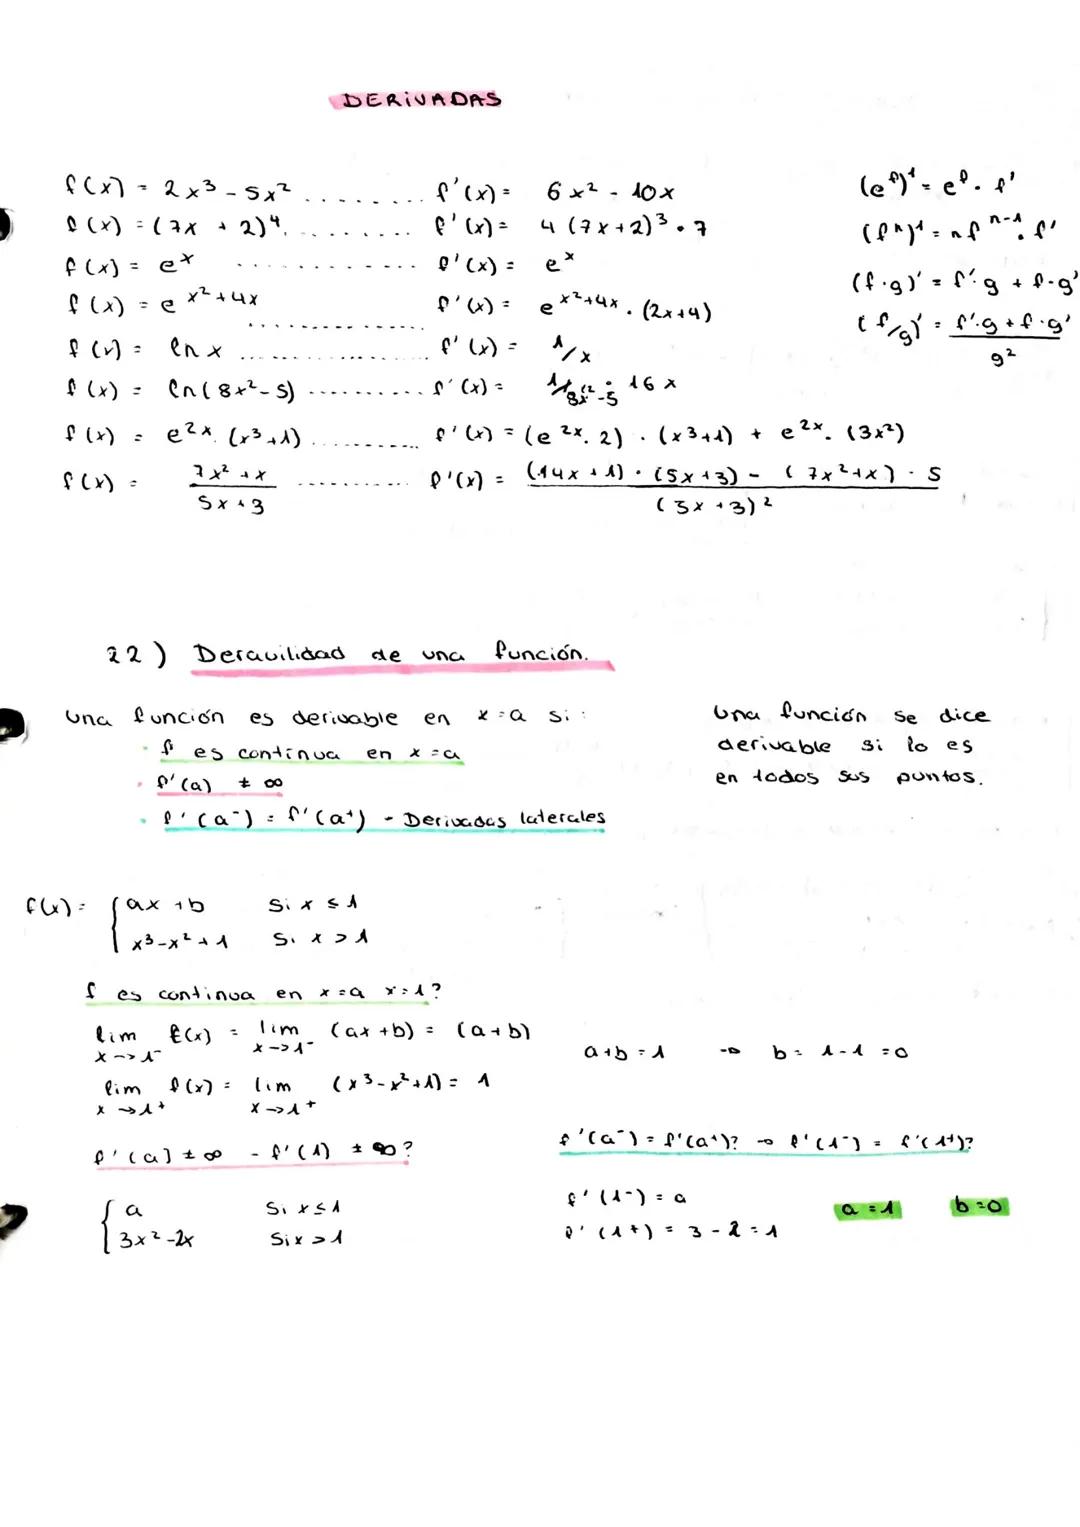 DERIVADAS
f(x) = 2x³ - 5x² ........ f'(x) = 6x² - 10x
f(x) = (7x + 2)⁴ ........ f'(x) = 4(7x+2)³ · 7
f(x) = eˣ ........ f'(x) = eˣ
f(x) = e^(x²+4x) ........ f'(x) = e^(x²+4x) · (2x+4)
f(x) = ln x ........ f'(x) = 1/x
f(x) = ln(8x²-5) ........ f'(x) = 1/8x²-5 · 16x
f(x) = e^(2x) · (x³+1) ........ f'(x) = (e^(2x) · 2) · (x³+1) + e^(2x) · (3x²)
f(x) = (7x²+x)/(5x+3) ........ f'(x) = ((14x+1) · (5x+3) - (7x²+x) · 5)/(5x+3)²
(e^f)' = e^f · f'
(fⁿ)' = n f^(n-1) · f'
(f·g)' = f'·g + f·g'
(f/g)' = (f'·g + f·g')/g²
22) Deravilidad de una función.
Una función es derivable en x=a si:
· f es continua en x=a
· f'(a) ≠ ∞
· f'(a⁻) = f'(a⁺) - Derivadas laterales
Una función se dice
derivable si lo es
en todos sus puntos.
f(x) = { ax + b si x ≤ 1
x³-x²+1 si x > 1
f es continua en x=a x=1?
lim x->1⁻ f(x) = lim x->1⁻ (ax+b) = (a+b)
lim x->1⁺ f(x) = lim x->1⁺ (x³-x²+1) = 1
a+b=1 -> b=1-1=0
f'(a) ≠ ∞ - f'(1) ≠ ∞?
{ a si x≤1
3x²-2x si x>1
f'(a⁻) = f'(a⁺)? -> f'(1⁻) = f'(1⁺)?
f'(1⁻) = a
f'(1⁺) = 3-2=1
a=1 b=0